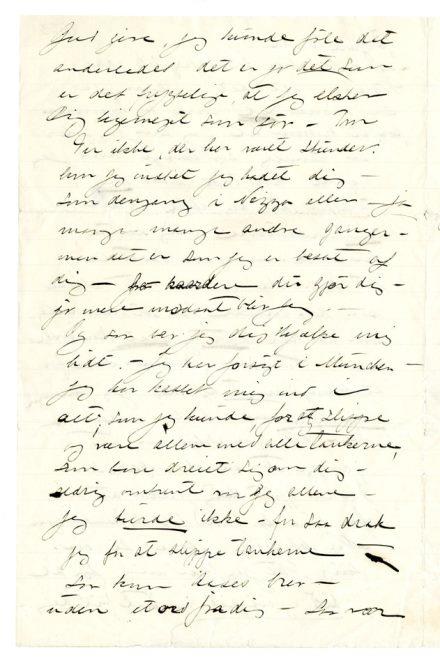 Gud give, jeg kunde føle det
anderledes – det er jo det som
er det hyggelige, at jeg elsker
Dig ligemeget som før – Tro
ikke, der har været stunder.
hvor jeg ønsket jeg hadet dig –
som dengang i Nizza eller – ja
mange mange andre ganger –
men det er som jeg er besat af
dig – du gjør dig –
jo mere modsat blir jeg
jeg dig hjælpe mig
lidt. – Jeg har forsøgt i München –
jeg har kastet mig ind i
alt, som jeg kunde, for at slippe
og være allene med alle tankerne,
som bare dreiet sig om dig –
aldrig omtrent var jeg allene –
jeg turde ikke – for saa drak
jeg for at slippe tankerne –
Saa kom brev –
uden et ord fra dig – Saa var